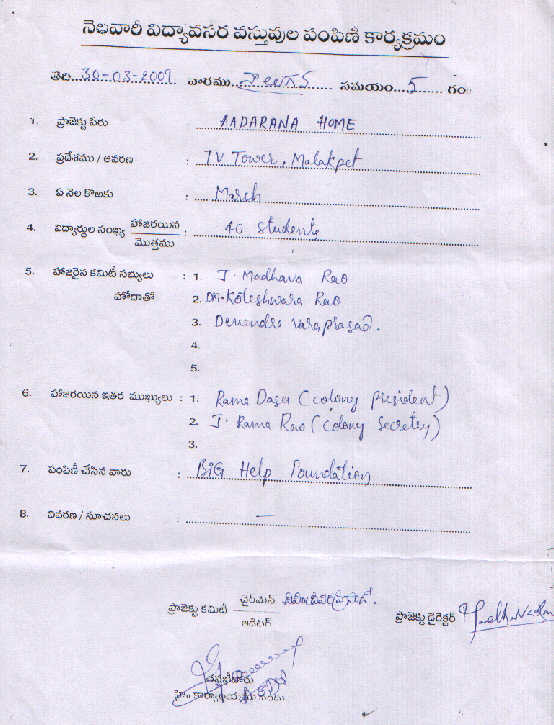 నెలవారీ విద్యావసర వస్తువుల పంపిణీ కార్యక్రమం
తేది...30-03-2009 వారము... సమయం...5...... గం॥
1. ప్రాజెక్టు పేరు : AADARANA HOME
2. ప్రదేశము / ఆవరణ : TV Tower, Malakpet
3. ఏ నెల కొఱకు : March
4. విద్యార్థుల సంఖ్య హాజరయిన : 40 students
మొత్తము
5. హాజరైన కమిటీ సభ్యులు : 1. J. Madhava Rao
హోదాతో 2. DR. Koteshwara Rao
3. Devendra Vara prasad.
4.
5.
6. హాజరయిన ఇతర ముఖ్యులు : 1. Rama Dasu (colony president)
2. J. Rama Rao (Colony Secretey)
3.
7. పంపిణీ చేసిన వారు : BIG Help Foundation
8. వివరణ / సూచనలు : —
ప్రాజెక్టు కమిటీ చైర్మన్
ప్రాజెక్టు డైరెక్టర్